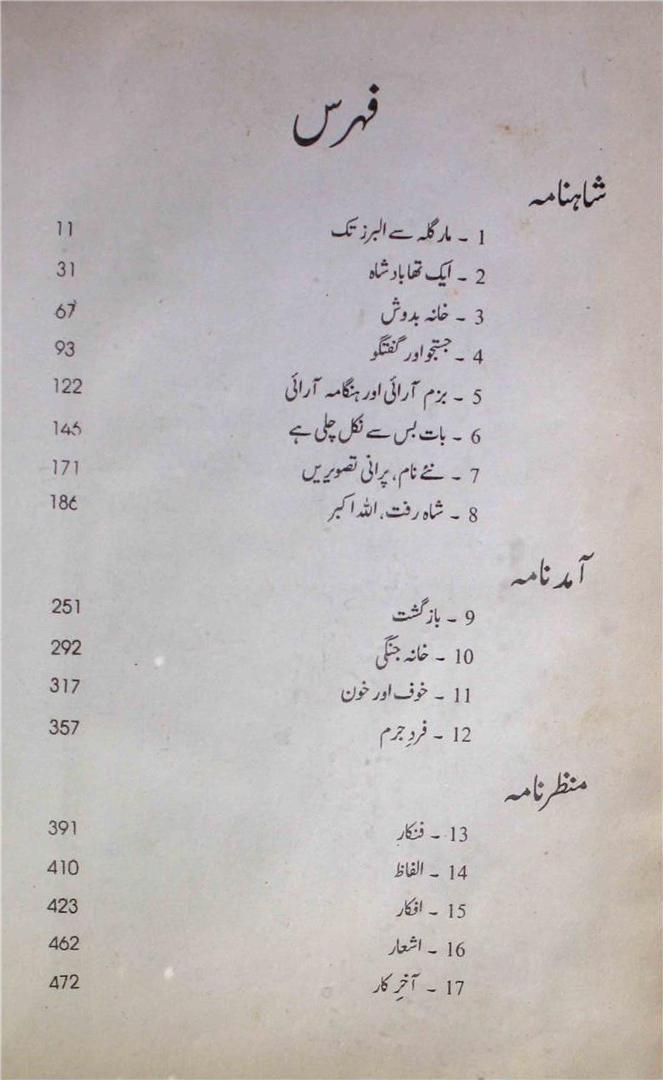 فہرس
شاہنامہ
1 - مارگلہ سے البرز تک 11
2 - ایک تھا بادشاہ 31
3 - خانہ بدوش 67
4 - جستجو اور گفتگو 93
5 - بزم آرائی اور ہنگامہ آرائی 122
6 - بات بس سے نکل چلی ہے 145
7 - نئے نام، پرانی تصویریں 171
8 - شاہ رفت، اللہ اکبر 186
آمد نامہ
9 - بازگشت 251
10 - خانہ جنگی 292
11 - خوف اور خون 317
12 - فردِ جرم 357
منظر نامہ
13 - فنکار 391
14 - الفاظ 410
15 - افکار 423
16 - اشعار 462
17 - آخرِ کار 472